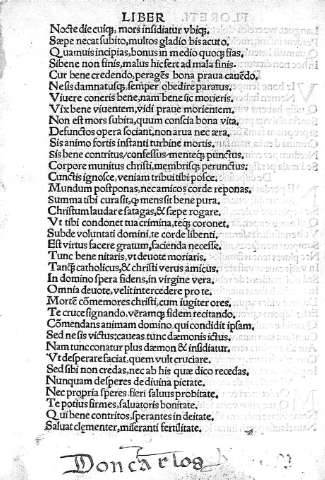 LIBER
Nocte die cuiq, mors insidiatur vbicq,
Sæpe necat subito, multos gladio bis acuto.
Quamuis incipias, bonus in medio quoq fias,
Si bene non finis, malus hic fert ad mala finis.
Cur bene credendo, peragēs bona praua cauēdo.
Ne sis damnatusq, semper obedire paratus.
Viuere coneris bene, nam bene sic morieris.
Vix bene viuentem, vidi praue morientem.
Non est mors subita, quum conscia bona vita,
Defunctos opera sociant, non arua nec æra.
Sis animo fortis instanti turbine mortis.
Sis bene contritus/confessus menteq punctus.
Corpore munitus christi, membrisq perunctus:
Cunctis ignosce, veniam tribui tibi posce.
Mundum postponas, nec amicos corde reponas,
Summa tibi cura sit, q mens sit bene pura.
Christum laudare satagas, & sæpe rogare.
Vt tibi condonet tua crimina, teq coronet.
Subde voluntati domini, te corde libenti.
Est virtus facere gratum, facienda necesse.
Tunc bene nitaris, vt deuote moriaris.
Tanq catholicus, & christi verus amicus.
In domino spera fidens, in virgine vera.
Omnia deuote, velit intercedere pro te.
Mortē cōmemores christi, cum iugiter ores,
Te cruce signando, veramq fidem recitando.
Cōmendans animam domino, qui condidit ipsam,
Sed ne sis victus; caueas tunc dæmonis ictus.
Nam tunc conatur plus dæmon & insidiatur.
Vt desperare faciat, quem vult cruciare.
Sed sibi non credas, nec ab his quæ dico recedas,
Nunquam desperes de diuina pietate.
Nec propria speres, fieri saluus probitate.
Te potius firmes, saluatoris bonitate.
Qui bene contritos, sperantes in deitate.
Saluat clementer, miseranti fertilitate.
Don carlos